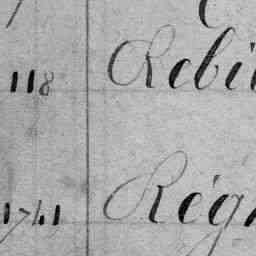 118 Rebi
1741 Rég